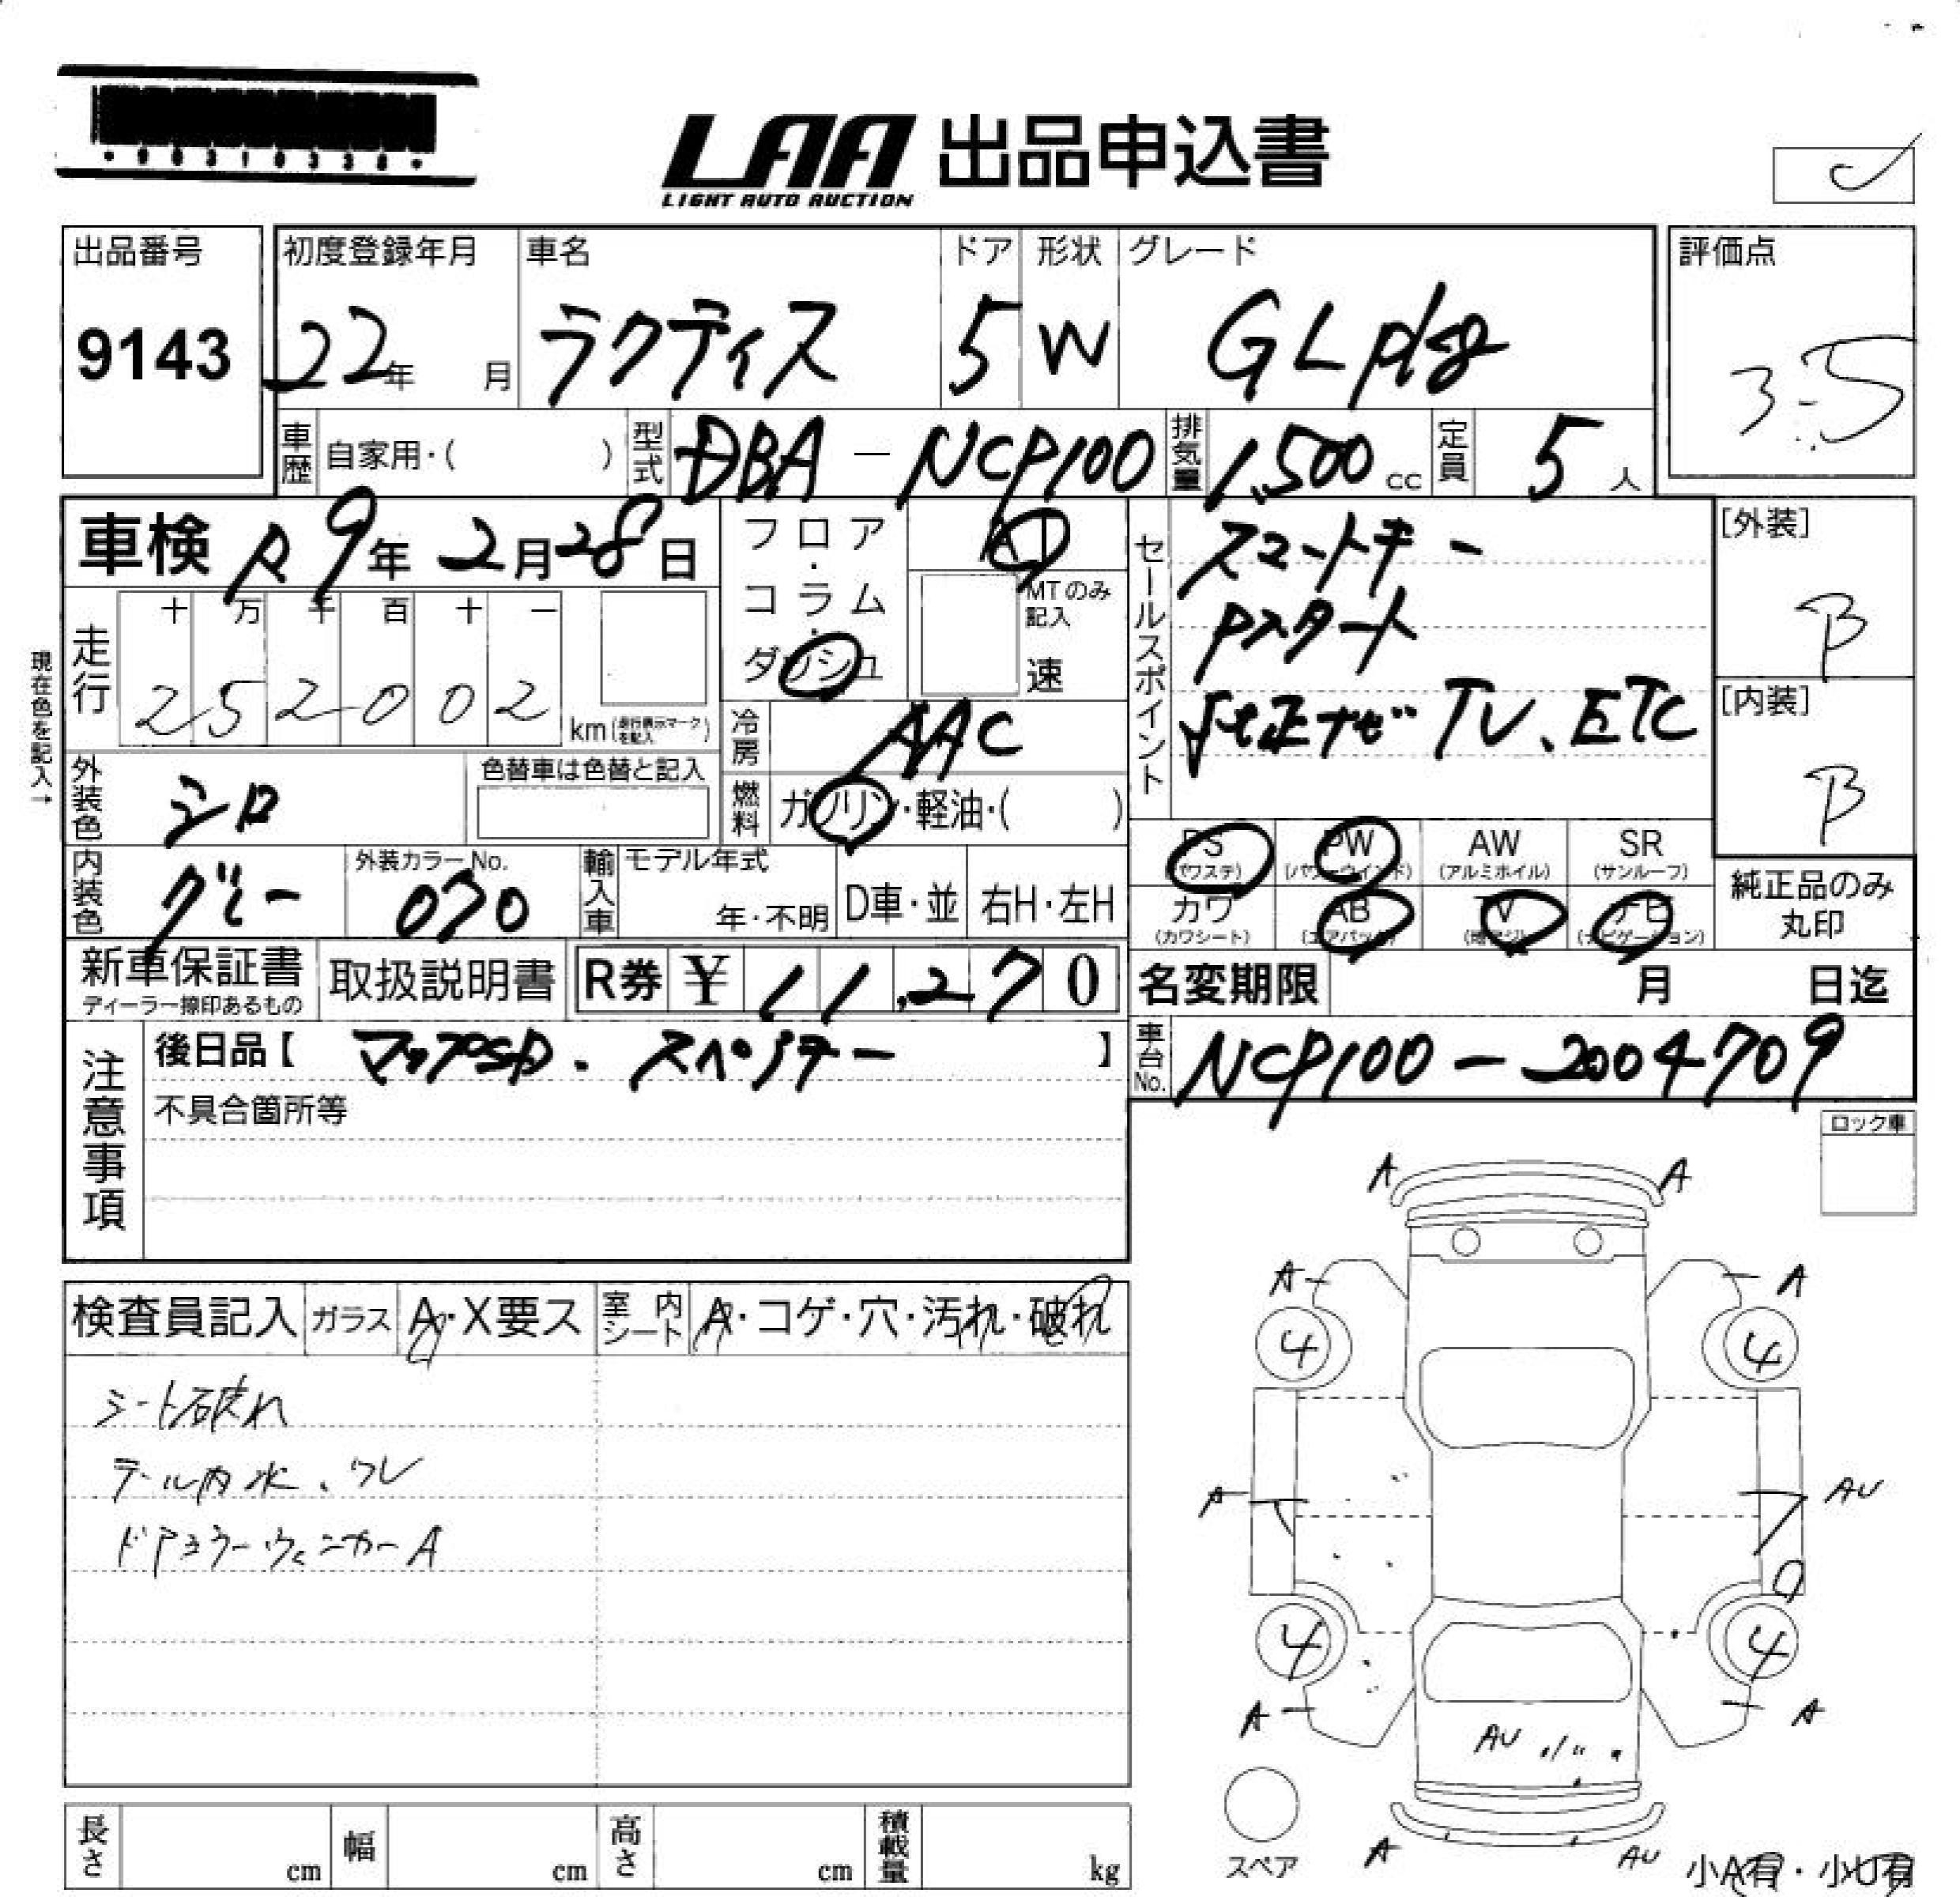 ・90310338・
LAA 出品申込書
LIGHT AUTO AUCTION
出品番号 9143
初度登録年月 22年 月
車名 ラクティス
ドア 5
形状 W
グレード GLpkg
評価点 3.5
車歴 自家用・( )
型式 DBA-NCP100
排気量 1,500 cc
定員 5人
車検 R9年2月28日
フロア・コラム・ダッシュ
AT
MTのみ記入
速
セールスポイント
スマートキー
Pスタート
純正ナビ TV、ETC
[外装] B
[内装] B
現在色を記入→
走行 十 万 千 百 十 一
2 5 2 0 0 2 km(走行表示マークを記入)
冷房 AAC
燃料 ガソリン・軽油・( )
外装色 シロ
色替車は色替と記入
内装色 グレー
外装カラーNo. 070
輸入車 モデル年式 年・不明
D車・並 右H・左H
PS (パワステ) PW (パワーウインド) AW (アルミホイル) SR (サンルーフ)
カワ (カワシート) AB (エアバック) TV (地デジ) ナビ (ナビゲーション)
純正品のみ丸印
新車保証書 ディーラー捺印あるもの
取扱説明書
R券 ¥ 11,270
名変期限 月 日迄
車台No. NCP100-2004709
注意事項
後日品【 マップSD・スペアキー 】
不具合箇所等
ロック車
検査員記入 ガラス A・X要ス 室内シート A・コゲ・穴・汚れ・破れ
シート破れ
テール内水、ワレ
ドアミラーウィンカーA
A A
A A
4 4
A AU
4 4
A A
AU
スペア
A AU
小A有・小U有
長さ cm 幅 cm 高さ cm 積載量 kg